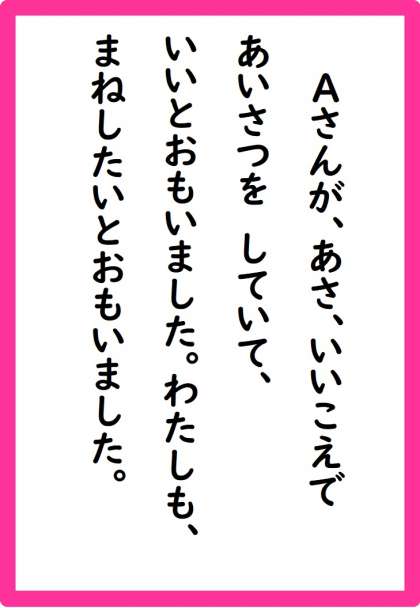 Ａさんが、あさ、いいこえで
あいさつを　していて、
いいとおもいました。わたしも、
まねしたいとおもいました。